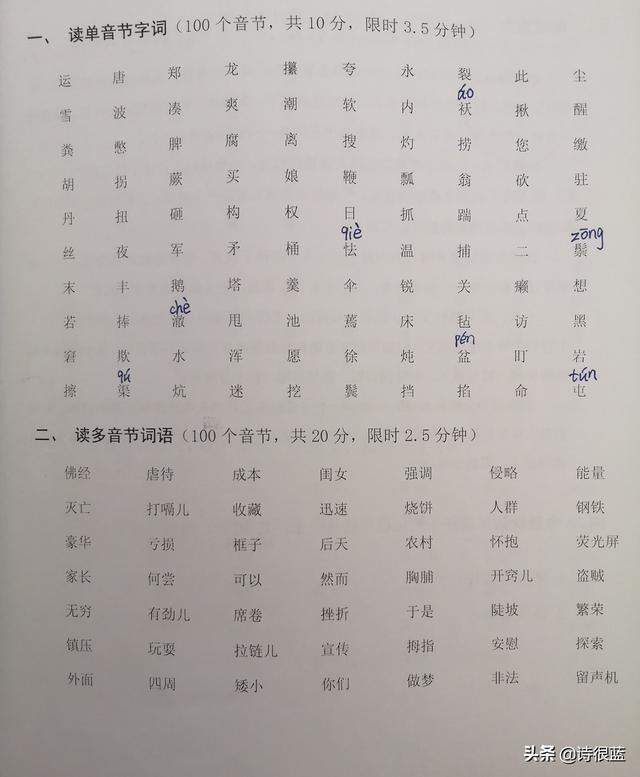 一、 读单音节字词(100 个音节,共 10 分,限时 3.5 分钟)
运 唐 郑 龙 攥 夸 永 裂 此 尘
áo
雪 波 凑 爽 潮 软 内 袄 揪 醒
粪 憋 脾 腐 离 搜 灼 捞 您 缴
胡 拐 蕨 买 娘 鞭 瓢 翁 砍 驻
丹 扭 砸 构 权 日 抓 踹 点 夏
qiè zōng
丝 夜 军 矛 桶 怯 温 捕 二 鬃
末 丰 鹅 塔 羹 伞 锐 关 癞 想
chè
若 捧 澈 甩 池 蔫 床 毡 访 黑
pén
窘 欺 水 浑 愿 徐 炖 盆 盯 岩
qú tún
擦 渠 炕 迷 挖 鬓 挡 掐 命 屯
二、 读多音节词语(100 个音节,共 20 分,限时 2.5 分钟)
佛经 虐待 成本 闺女 强调 侵略 能量
灭亡 打嗝儿 收藏 迅速 烧饼 人群 钢铁
豪华 亏损 框子 后天 农村 怀抱 荧光屏
家长 何尝 可以 然而 胸脯 开窍儿 盗贼
无穷 有劲儿 席卷 挫折 于是 陡坡 繁荣
镇压 玩耍 拉链儿 宣传 拇指 安慰 探索
外面 四周 矮小 你们 做梦 非法 留声机
头条 @诗很蓝